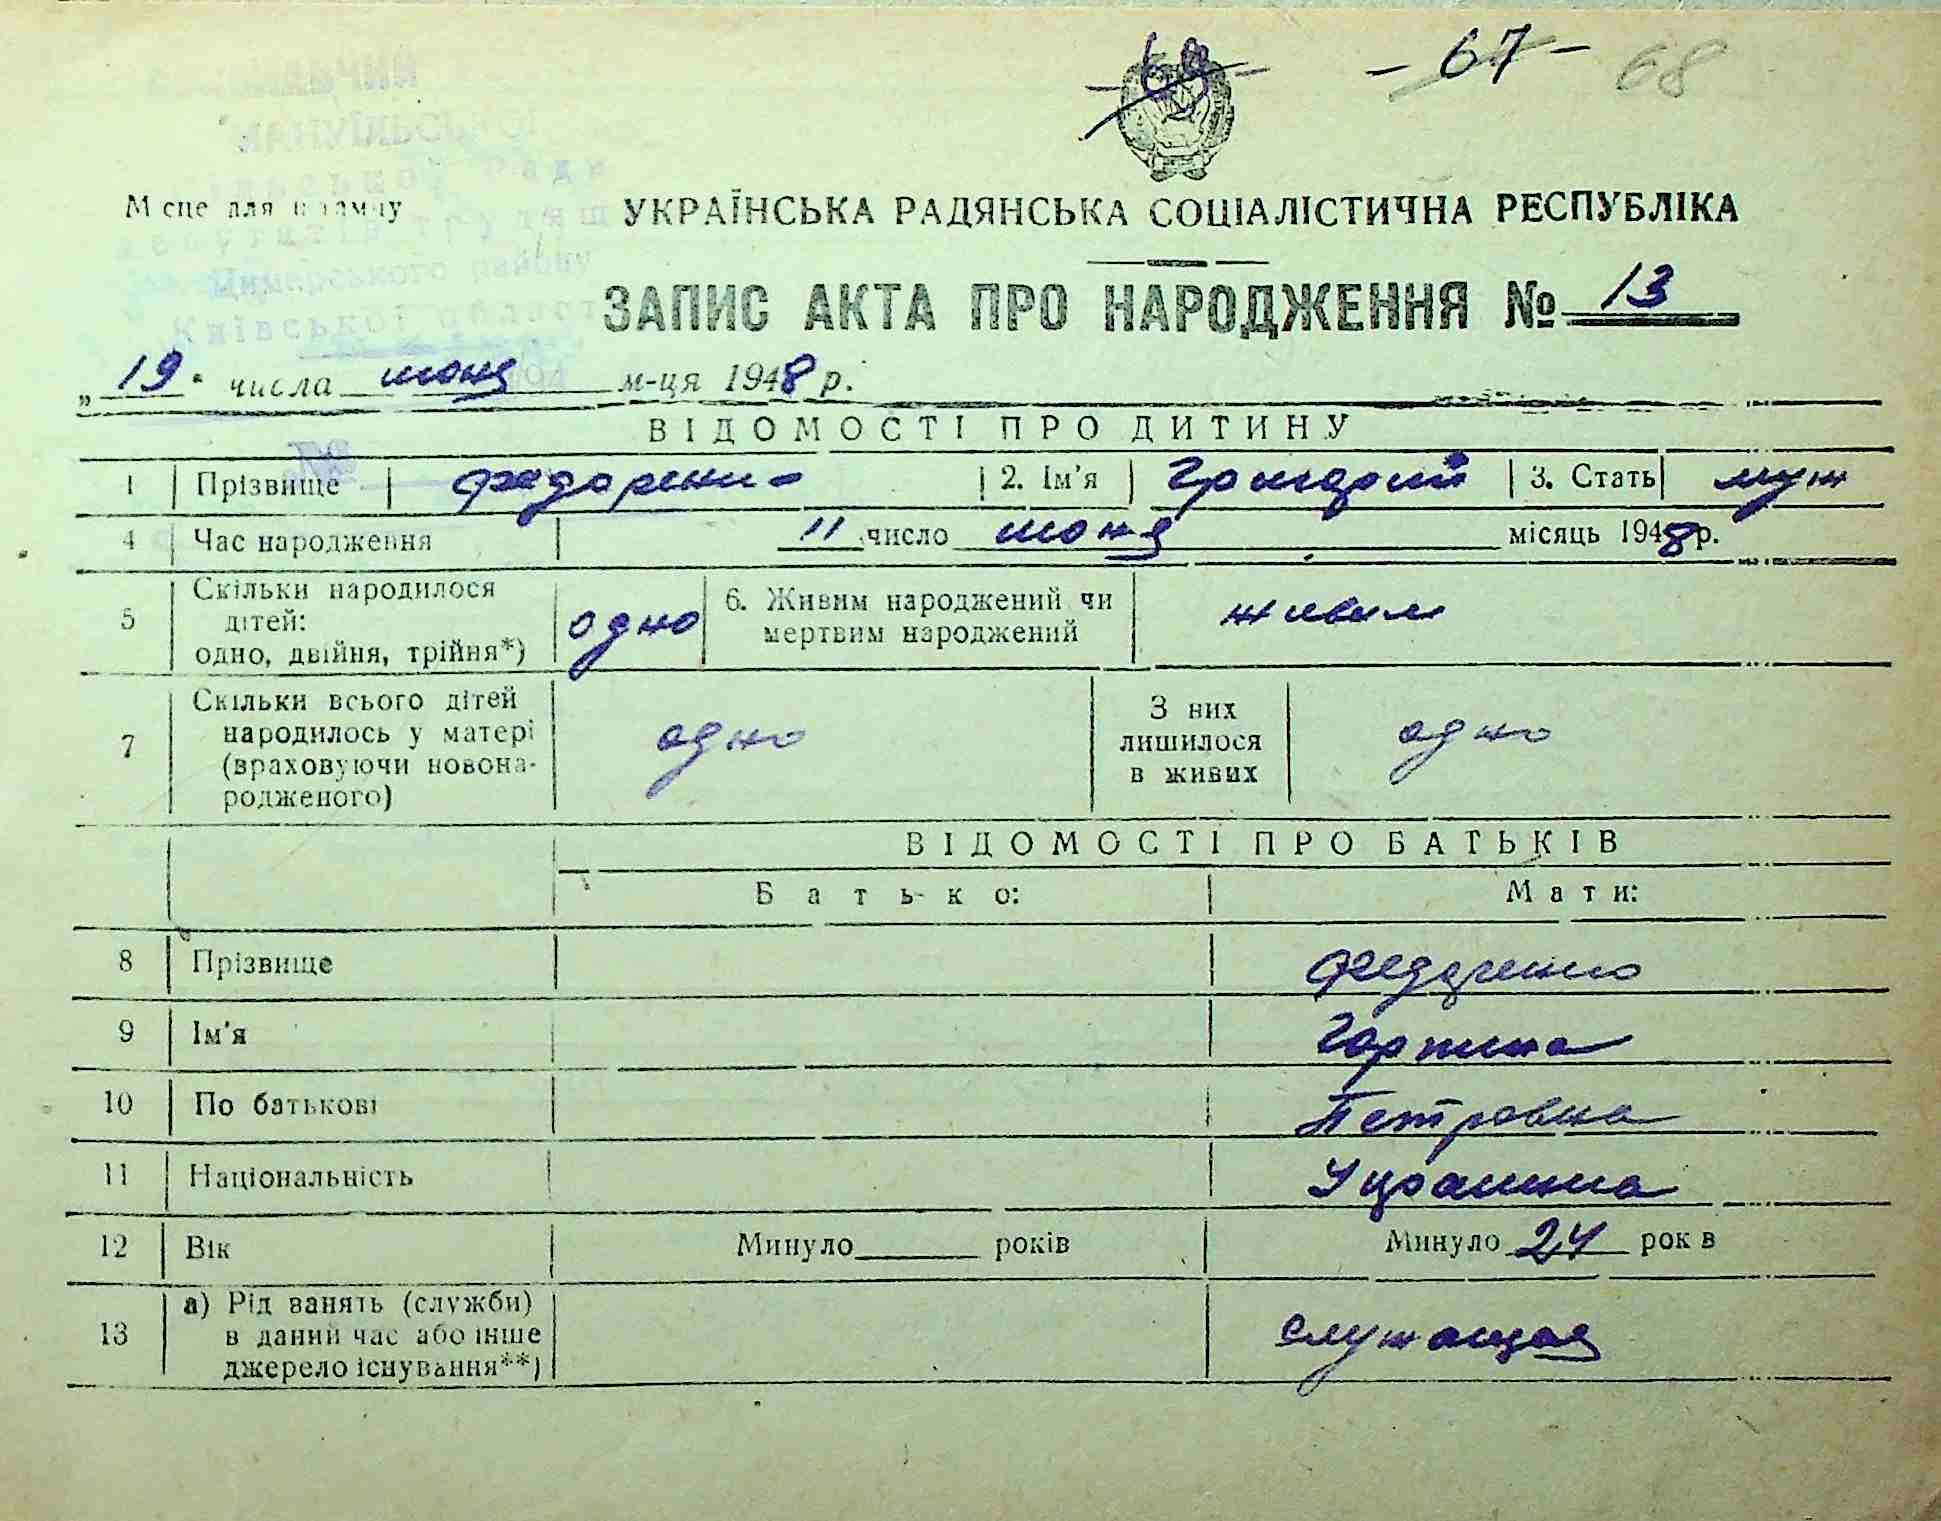 - 67 - 68
Місце для штампу
УКРАЇНСЬКА РАДЯНСЬКА СОЦІАЛІСТИЧНА РЕСПУБЛІКА
ЗАПИС АКТА ПРО НАРОДЖЕННЯ № 13
„19" числа июня м-ця 1948 р.
ВІДОМОСТІ ПРО ДИТИНУ
1 Прізвище Федоренко 2. Ім'я Григорий 3. Стать муж
4 Час народження 11 число июня місяць 1948 р.
5 Скільки народилося дітей: одно, двійня, трійня*) одно 6. Живим народжений чи мертвим народжений живым
7 Скільки всього дітей народилось у матері (враховуючи новонародженого) одно З них лишилося в живих одно
ВІДОМОСТІ ПРО БАТЬКІВ
Батько: Мати:
8 Прізвище Федоренко
9 Ім'я Горпина
10 По батькові Петровна
11 Національність Украинка
12 Вік Минуло років Минуло 24 рок в
13 а) Рід занять (служби) в даний час або інше джерело існування**) служащая